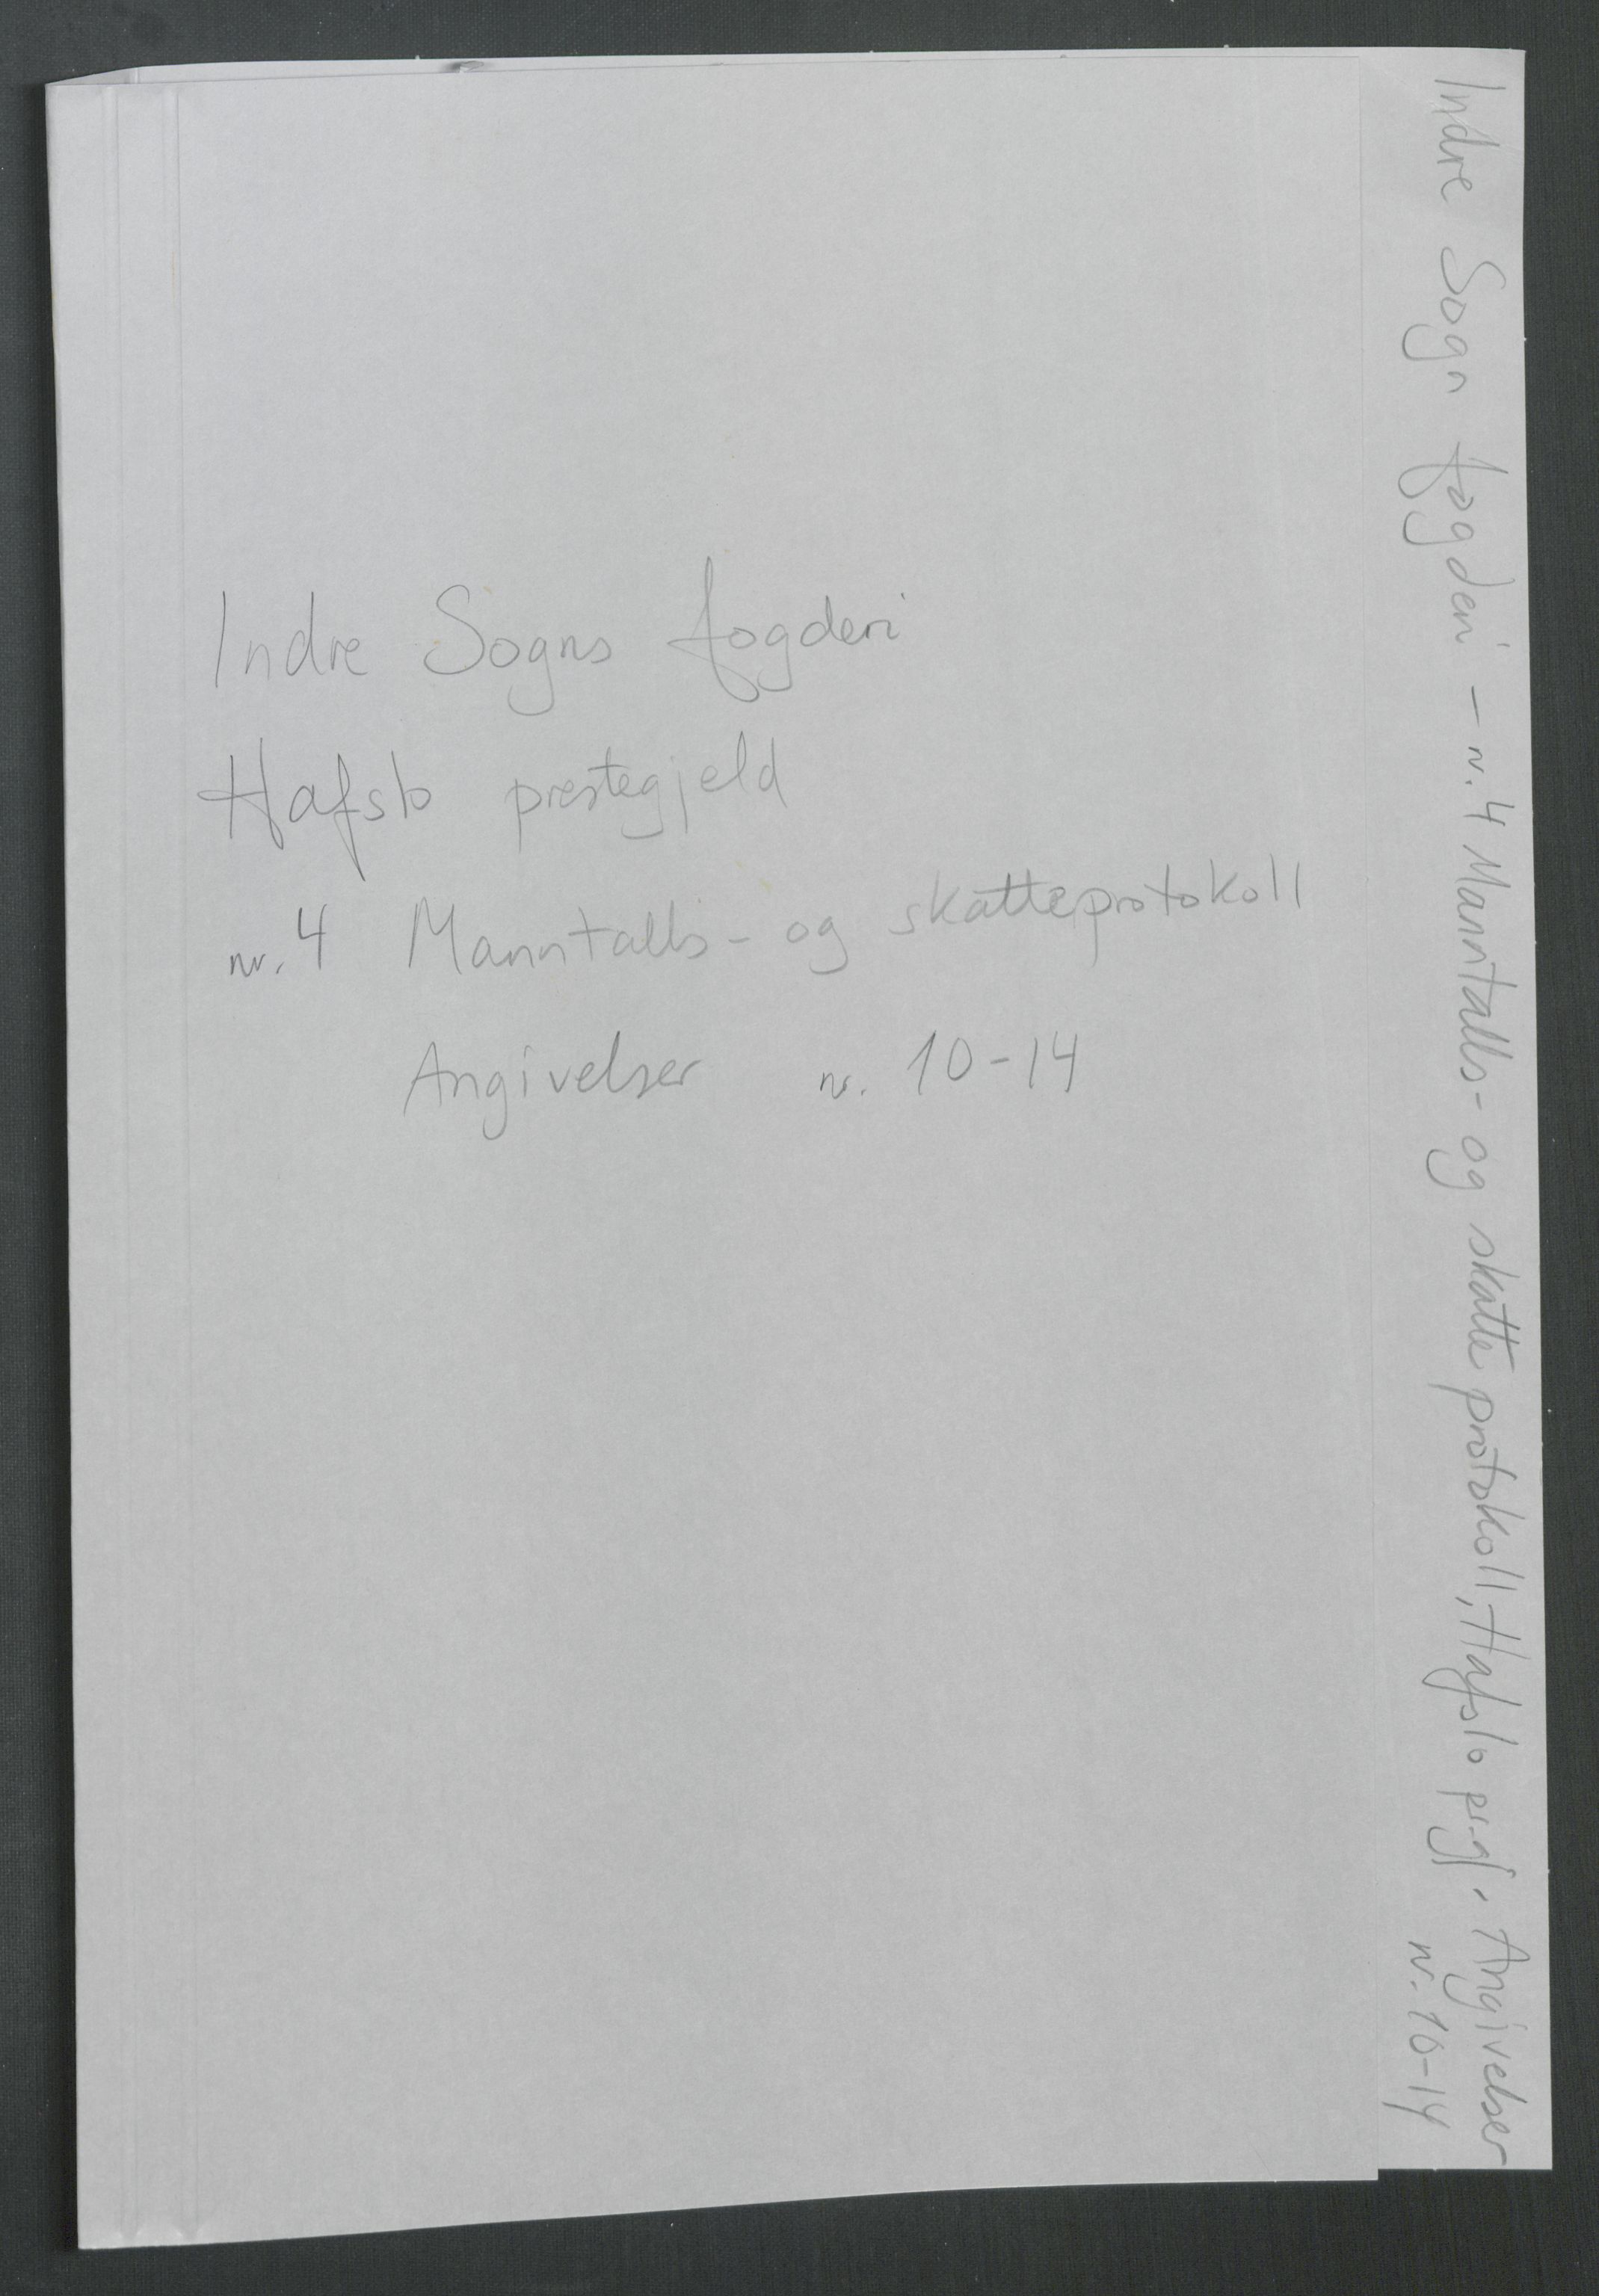 Indre Sogns fogderi
Hafslo prestegjeld
nr. 4 Manntalls- og skatteprotokoll
Angivelser nr. 10-14
Indre Sogn fogderi - nr. 4 Manntalls- og skatteprotokoll, Hafslo prgj. Angivelser
nr. 10-14